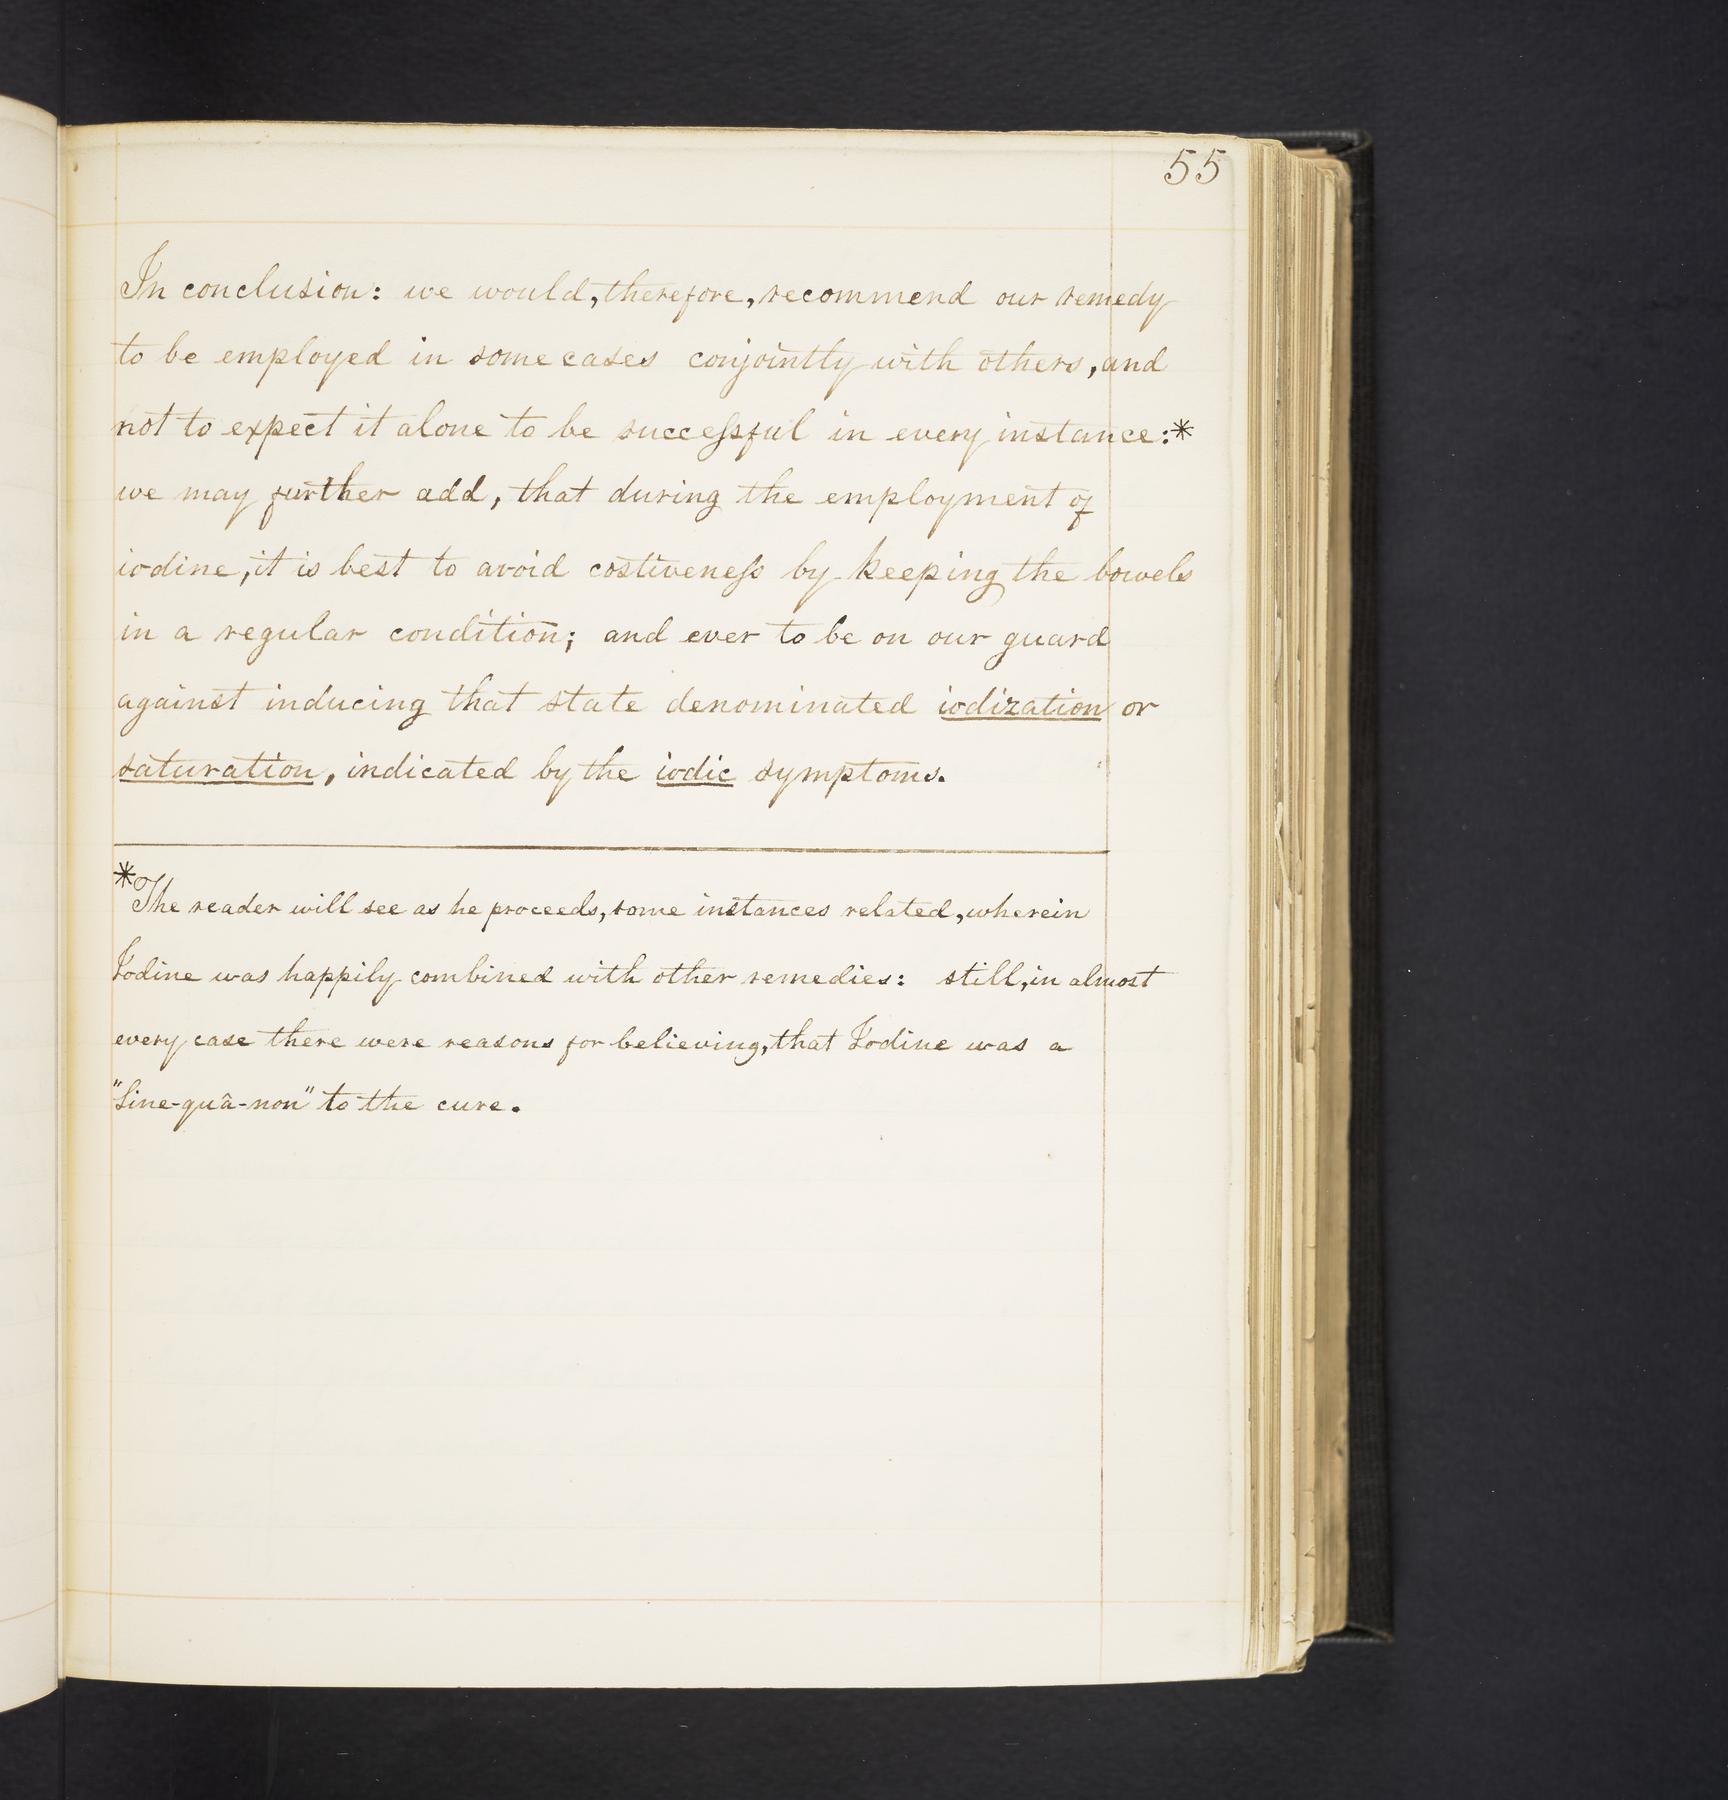 55
In conclusion: we would, therefore, recommend our remedy
to be employed in some cases conjointly with others, and
not to expect it alone to be succeſsful in every instance:*
we may further add, that during the employment of
iodine, it is best to avoid costiveneſs by keeping the bowels
in a regular condition; and ever to be on our guard
against inducing that state denominated iodization or
saturation, indicated by the iodic symptoms.
*The reader will see as he proceeds, some instances related, wherein
Iodine was happily combined with other remedies: still, in almost
every case there were reasons for believing, that Iodine was a
"Sine-quâ-non" to the cure.